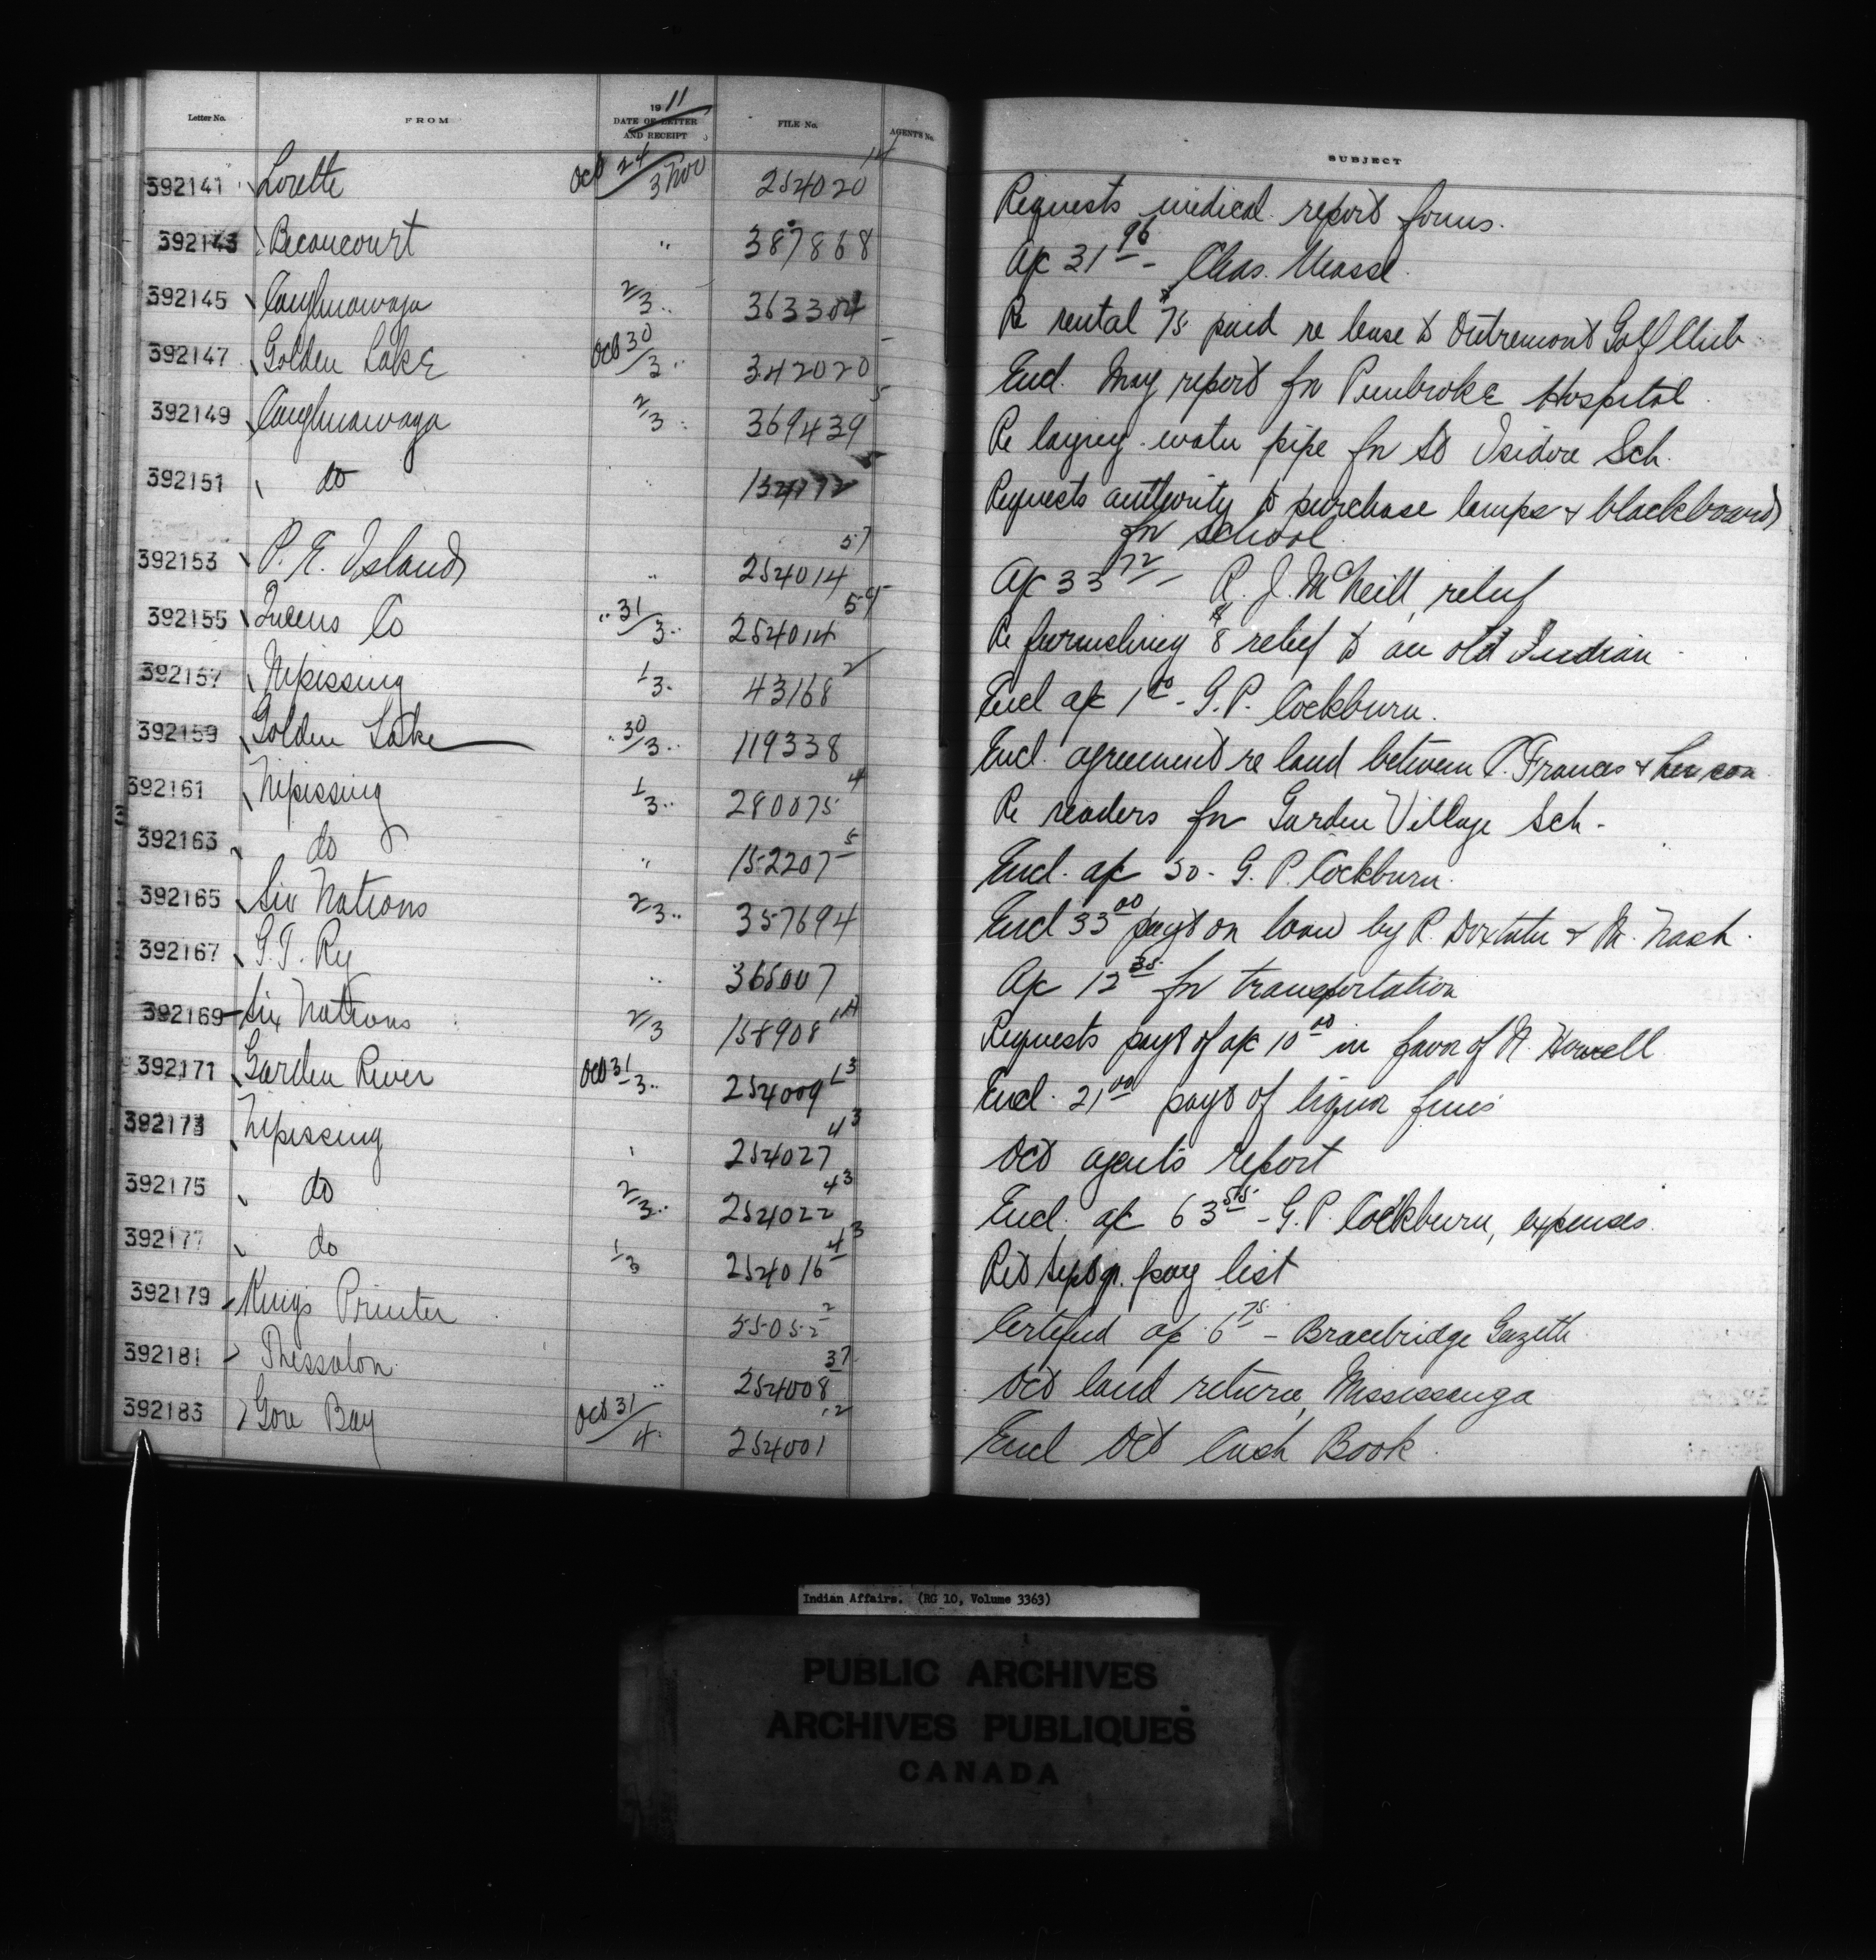 Letter No. FROM 1911 DATE OF LETTER AND RECEIPT FILE No. AGENTS No. SUBJECT
392141 Lorette Oct 24/3 Nov 254020 14 Requests medical report forms.
392143 Becancourt " 387868 a/c 31 96 - Chas. Masse.
392145 Caughnawaga 2/3 " 363304 Re rental $75 paid re lease to Outremont Golf Club
392147 Golden Lake Oct 30/3 " 342020 Encl. May report fr Pembroke Hospital.
392149 Caughnawaga 2/3 " 369439 5 Re laying water pipe for St Isidore Sch.
392151 do " Requests authority to purchase lamps & blackboards
for school
392153 P. E. Island " 254014 57 a/c 33 72 - R. J. McNeill, relief
392155 Queens Co " 31/3 " 254014 Re furnishing $8 relief to an old Indian
392157 Nipissing 1/3 " 43168 2 Encl a/c 1 00 - G. P. Cockburn.
392159 Golden Lake " 30/3 " 119338 Encl. agreement re land between P. Francis & her son
392161 Nipissing 1/3 " 280075 4 Re readers for Garden Village Sch.
392163 do " 152207 5 Encl. a/c 50 - G. P. Cockburn.
392165 Six Nations 2/3 " 357694 Encl 33 00 payt on loan by R. Doxtater & M. Nash.
392167 G. T. Ry " 365007 a/c 12 35 for transportation
392169 Six Nations 2/3 158908 Requests payt of a/c 10 00 in favor of N. Howell
392171 Garden River Oct 31/3 " 254009 13 Encl. 21 00 payt of liquor fines
392173 Nipissing " 254027 43 Oct agent's report
392175 do 2/3 " 254022 43 Encl. a/c 63 55 - G. P. Cockburn, expenses.
392177 do 1/3 254016 43 Ret Sept qr. pay list
392179 Kings Printer 55052 2 Certified a/c 6 75 - Bracebridge Gazette
392181 Thessalon " 254008 37 Oct land return, Mississauga
392183 Gore Bay Oct 31/4 " 254001 12 Encl Oct Cash Book.
Indian Affairs. (RG 10, Volume 3363)
PUBLIC ARCHIVES
ARCHIVES PUBLIQUES
CANADA